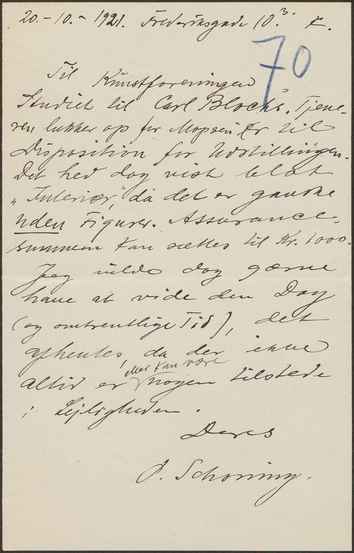 20.-10.-1921. Frederiksgade 10.³
70
Til Kunstforeningen
Studiet til Carl Bloch's „Tjene-
ren lukker op for Mopsen“ Er til
Disposition for Udstillingen.
Det hed dog vist blot
„Interiør“, da det er ganske
uden Figurer. Assurance-
summen kan sættes til Kr. 1000.
Jeg vilde dog gærne
have at vide den Dag
(og omtrentlige Tid), det
afhentes, da der ikke
altid er nogen tilstede
i Lejligheden.
Deres
O. Schoning.